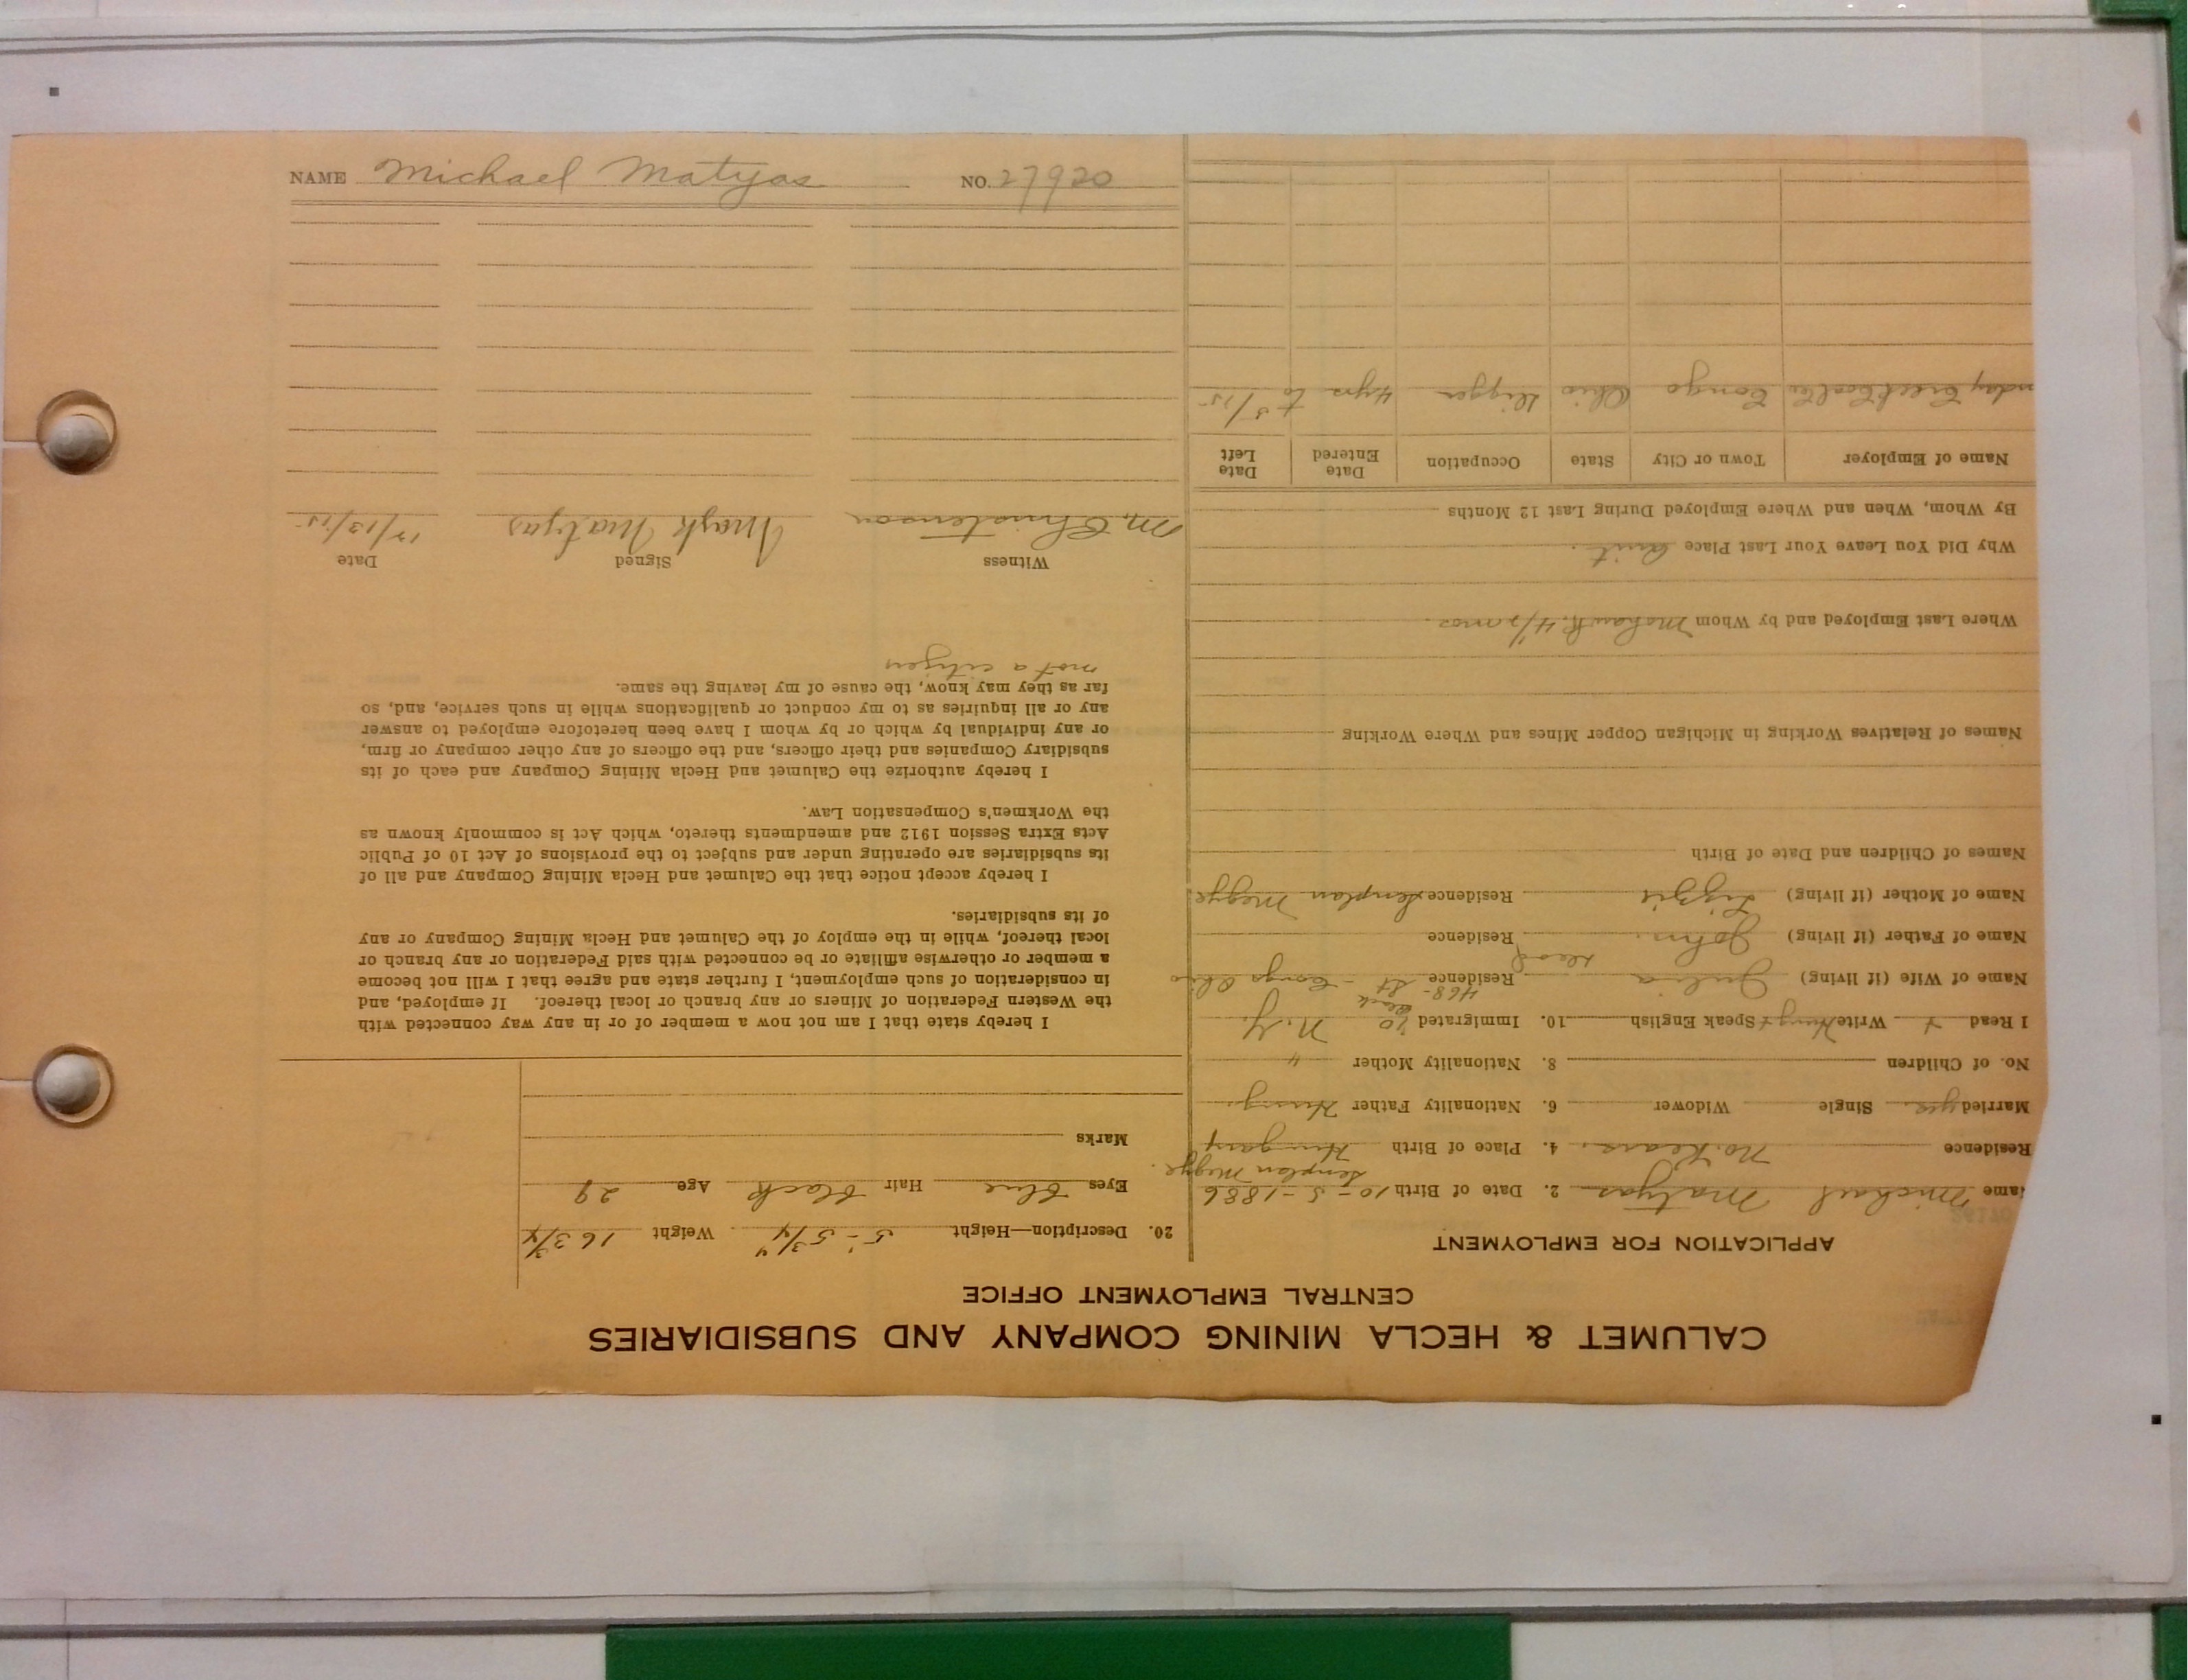 NAME Michael Matyas NO. 27920
CALUMET & HECLA MINING COMPANY AND SUBSIDIARIES
CENTRAL EMPLOYMENT OFFICE
APPLICATION FOR EMPLOYMENT
ame Michael Matyas 2. Date of Birth 10-5-1886
Residence No. Kears. 4. Place of Birth Hungary
Married yes Single Widower 6. Nationality Father Hung.
No. of Children 8. Nationality Mother "
I Read + Write Hung + Speak English 10. Immigrated N.Y.
468-
Name of Wife (if living) Julia Residence St - Congo Ohio
dead
Name of Father (if living) John. Residence
Name of Mother (if living) Lizzie Residence Megye
Names of Children and Date of Birth
Names of Relatives Working in Michigan Copper Mines and Where Working
Where Last Employed and by Whom Mohawk. 4 1/2 mos.
Why Did You Leave Your Last Place Quit.
By Whom, When and Where Employed During Last 12 Months
Name of Employer Town or City State Occupation Date Entered Date Left
nday Creek Coal Co Congo Ohio digger 4 yrs to
20. Description—Height 5'-5 3/4" Weight 163 3/4
Eyes blue Hair black Age 29
Marks
I hereby state that I am not now a member of or in any way connected with
the Western Federation of Miners or any branch or local thereof. If employed, and
in consideration of such employment, I further state and agree that I will not become
a member or otherwise affiliate or be connected with said Federation or any branch or
local thereof, while in the employ of the Calumet and Hecla Mining Company or any
of its subsidiaries.
I hereby accept notice that the Calumet and Hecla Mining Company and all of
its subsidiaries are operating under and subject to the provisions of Act 10 of Public
Acts Extra Session 1912 and amendments thereto, which Act is commonly known as
the Workmen's Compensation Law.
I hereby authorize the Calumet and Hecla Mining Company and each of its
subsidiary Companies and their officers, and the officers of any other company or firm,
or any individual by which or by whom I have been heretofore employed to answer
any or all inquiries as to my conduct or qualifications while in such service, and, so
far as they may know, the cause of my leaving the same.
not a citizen
Witness Signed Date
M. Christenson Matyas